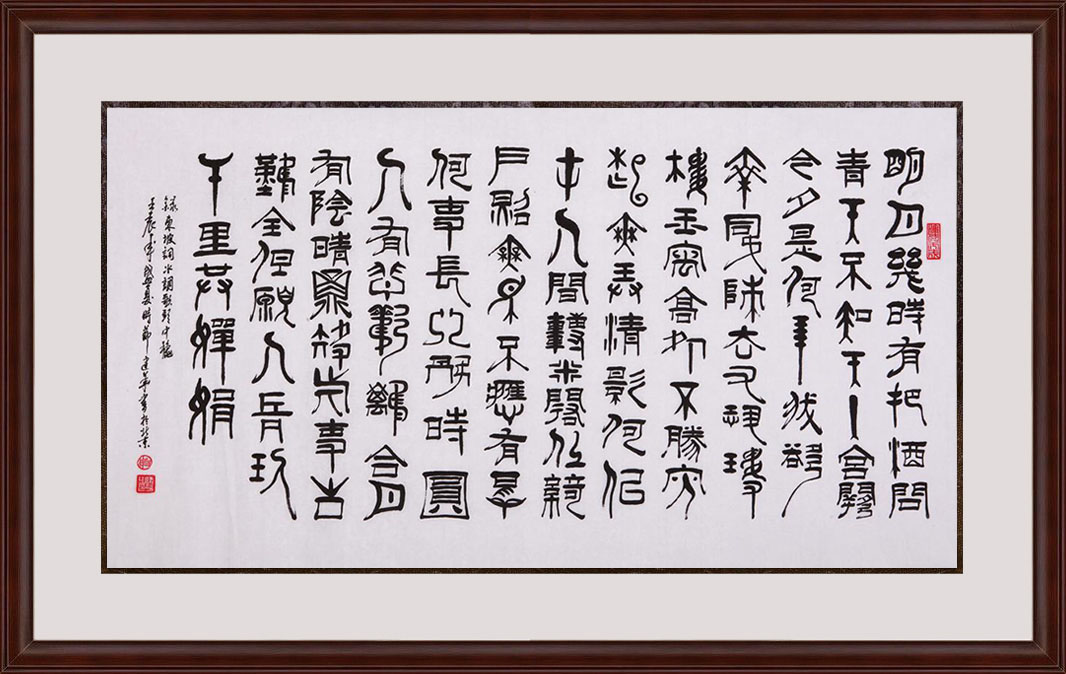 明月幾時有把酒問
青天不知天上宮闕
今夕是何年我欲
乘風歸去又恐瓊
樓玉宇高処不勝寒
起舞弄清影何似
在人間轉朱閣低綺
戶照無眠不應有恨
何事長向別時圓
人有悲歡離合月
有陰晴圓缺此事古
難全但願人長久
千里共嬋娟
錄東坡詞水調歌頭中秋
壬辰年盛夏時節建華書於北京